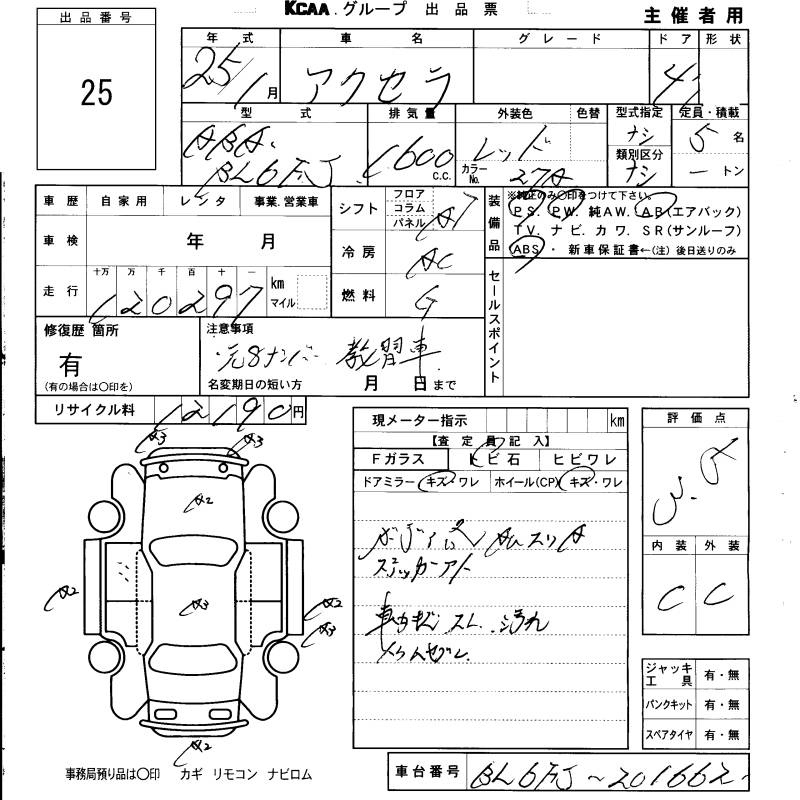 KCAA.グループ 出品票
主催者用
出品番号
25
年式 車名 グレード ドア 形状
25/1月 アクセラ 4
型式 排気量 外装色 色替 型式指定 定員・積載
ABA. BL6FJ 1600 C.C. レッド カラーNo. 27A ナシ 5名
類別区分
ナシ ートン
車歴 自家用 レンタ 事業.営業車
車検 年 月
走行 十万 万 千 百 十 一 km マイル
120297
シフト フロア コラム パネル AT
冷房 AC
燃料 G
装備品
※純正のみ〇印をつけて下さい。
PS. PW. 純AW. AB(エアバック)
TV. ナビ. カワ. SR(サンルーフ)
ABS ・ 新車保証書←(注) 後日送りのみ
セールスポイント
修復歴 箇所
有
(有の場合は〇印を)
注意事項
元8ナンバー 教習車
名変期日の短い方 月 日まで
リサイクル料 12190円
現メーター指示 km
【査定員記入】
Fガラス トビ石 ヒビワレ
ドアミラー キズ・ワレ ホイール(CP) キズ・ワレ
ステッカーアト
汚れ
評価点
内装 外装
C C
ジャッキ工具 有・無
パンクキット 有・無
スペアタイヤ 有・無
A3 A3
A2
A2 A3 A2
A3
A2
事務局預り品は〇印 カギ リモコン ナビロム
車台番号 BL6FJ-201662